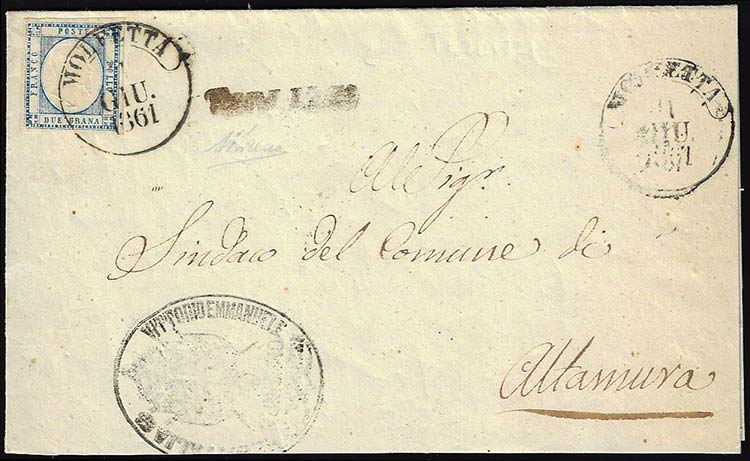 FRANCO
POSTE
BOLLO
DUE GRANA
MOLFETTA
1
GIU.
1861
MOLFETTA
1
GIU.
1861
Al Sigr.
Sindaco del Comune di
Altamura
VITTORIO EMMANUELE